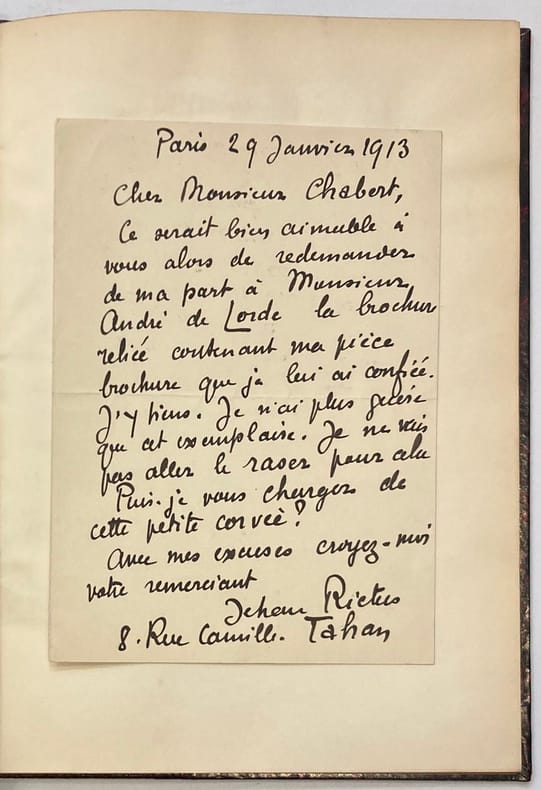 Paris 29 Janvier 1913
Cher Monsieur Chabert,
Ce serait bien aimable à
vous alors de redemander
de ma part à Monsieur
André de Lorde la brochure
reliée contenant ma pièce
brochure que je lui ai confiée.
J'y tiens. Je n'ai plus guère
que cet exemplaire. Je ne vais
pas aller le raser pour cela
Puis-je vous charger de
cette petite corvée?
Avec mes excuses croyez-moi
votre remerciant
Jehan Rictus
8. Rue Camille. Tahan